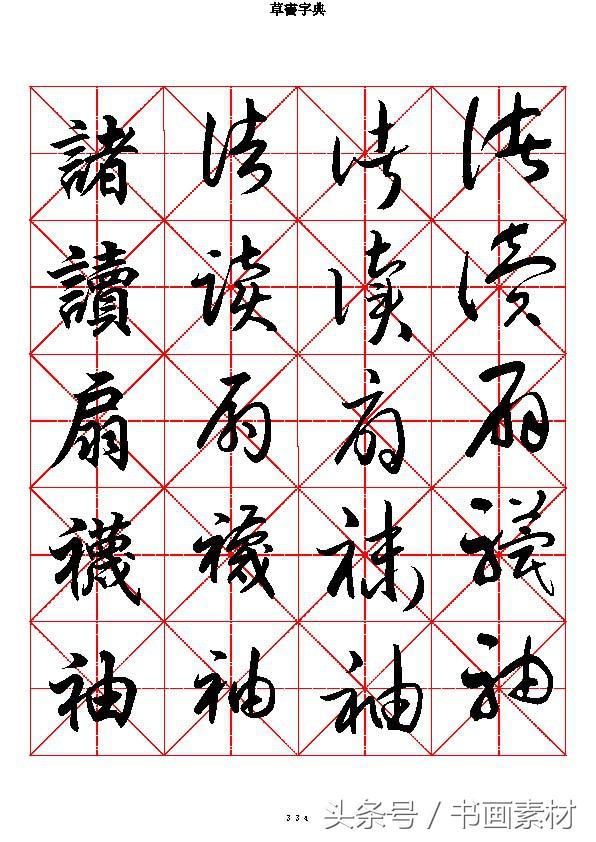 草書字典
諸 诸 诸 诸
讀 读 读 读
扇 扇 扇 扇
襪 襪 袜 襪
袖 袖 袖 袖
334
头条号 / 书画素材